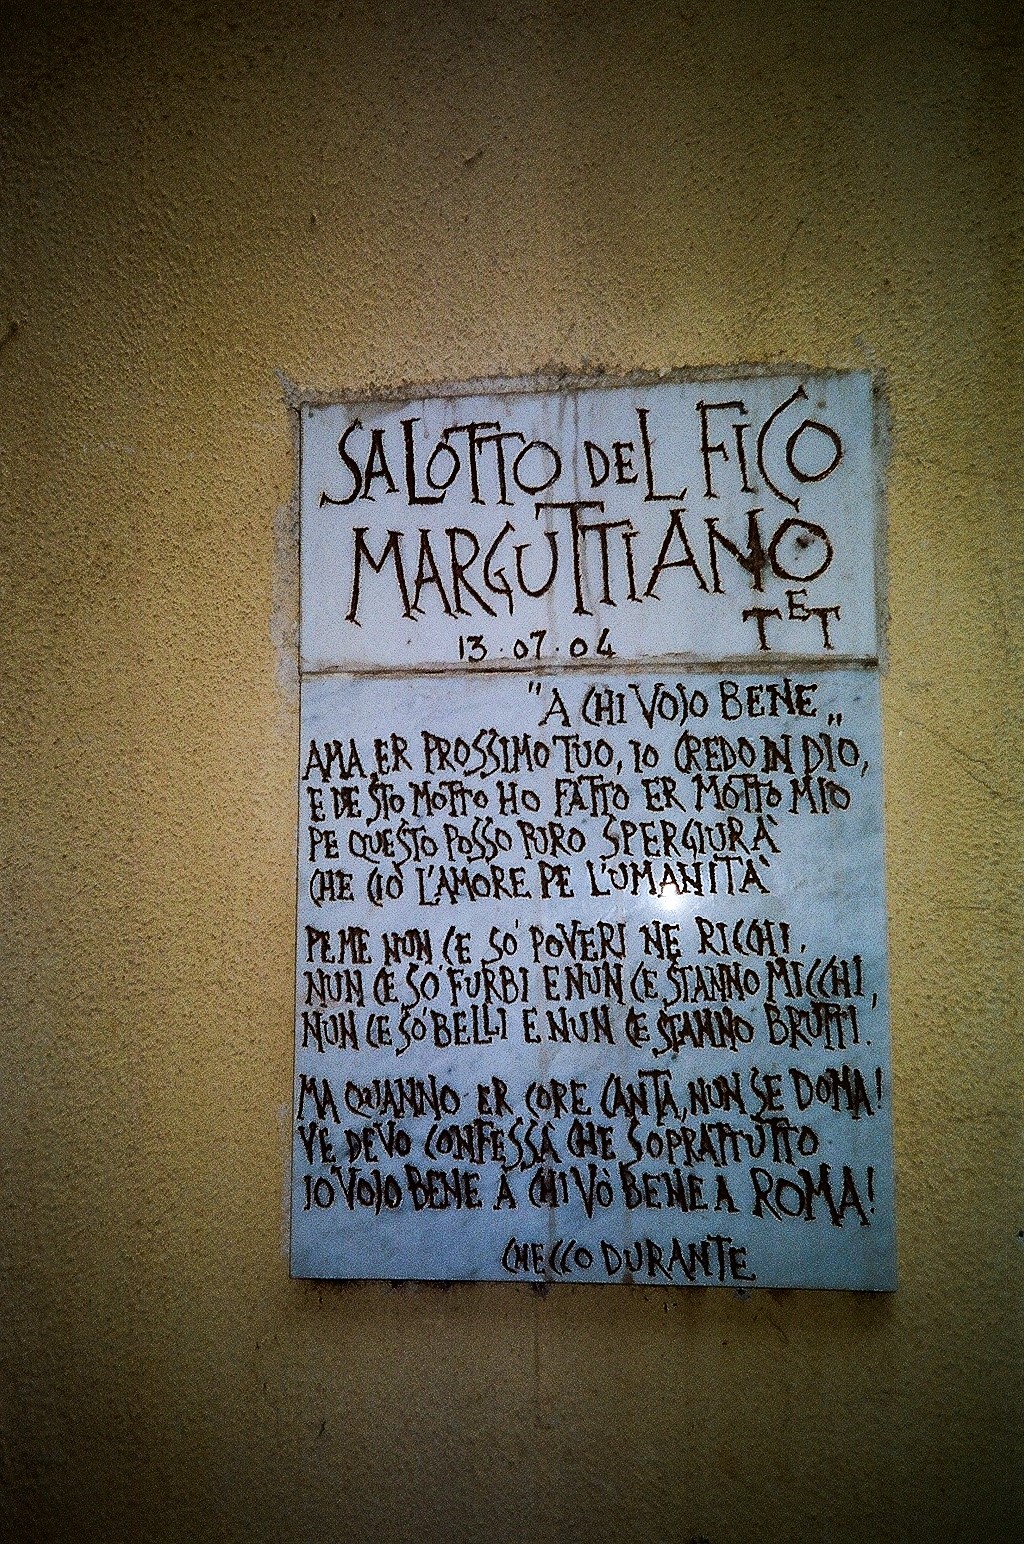 SALOTTO DEL FICO
MARGUTTIANO
TET
13.07.04
"A CHI VOJO BENE„
AMA ER PROSSIMO TUO, IO CREDO IN DIO,
E DE STO MOTTO HO FATTO ER MOTTO MIO
PE QUESTO POSSO PURO SPERGIURÀ
CHE CIÒ L'AMORE PE L'UMANITÀ
PE ME NUN CE SO' POVERI NE RICCHI,
NUN CE SO' FURBI E NUN CE STANNO MICCHI,
NUN CE SO' BELLI E NUN CE STANNO BRUTTI.
MA QUANNO ER CORE CANTA, NUN SE DOMA!
VE DEVO CONFESSÀ CHE SOPRATTUTTO
IO VOJO BENE A CHI VÒ BENE A ROMA!
CHECCO DURANTE